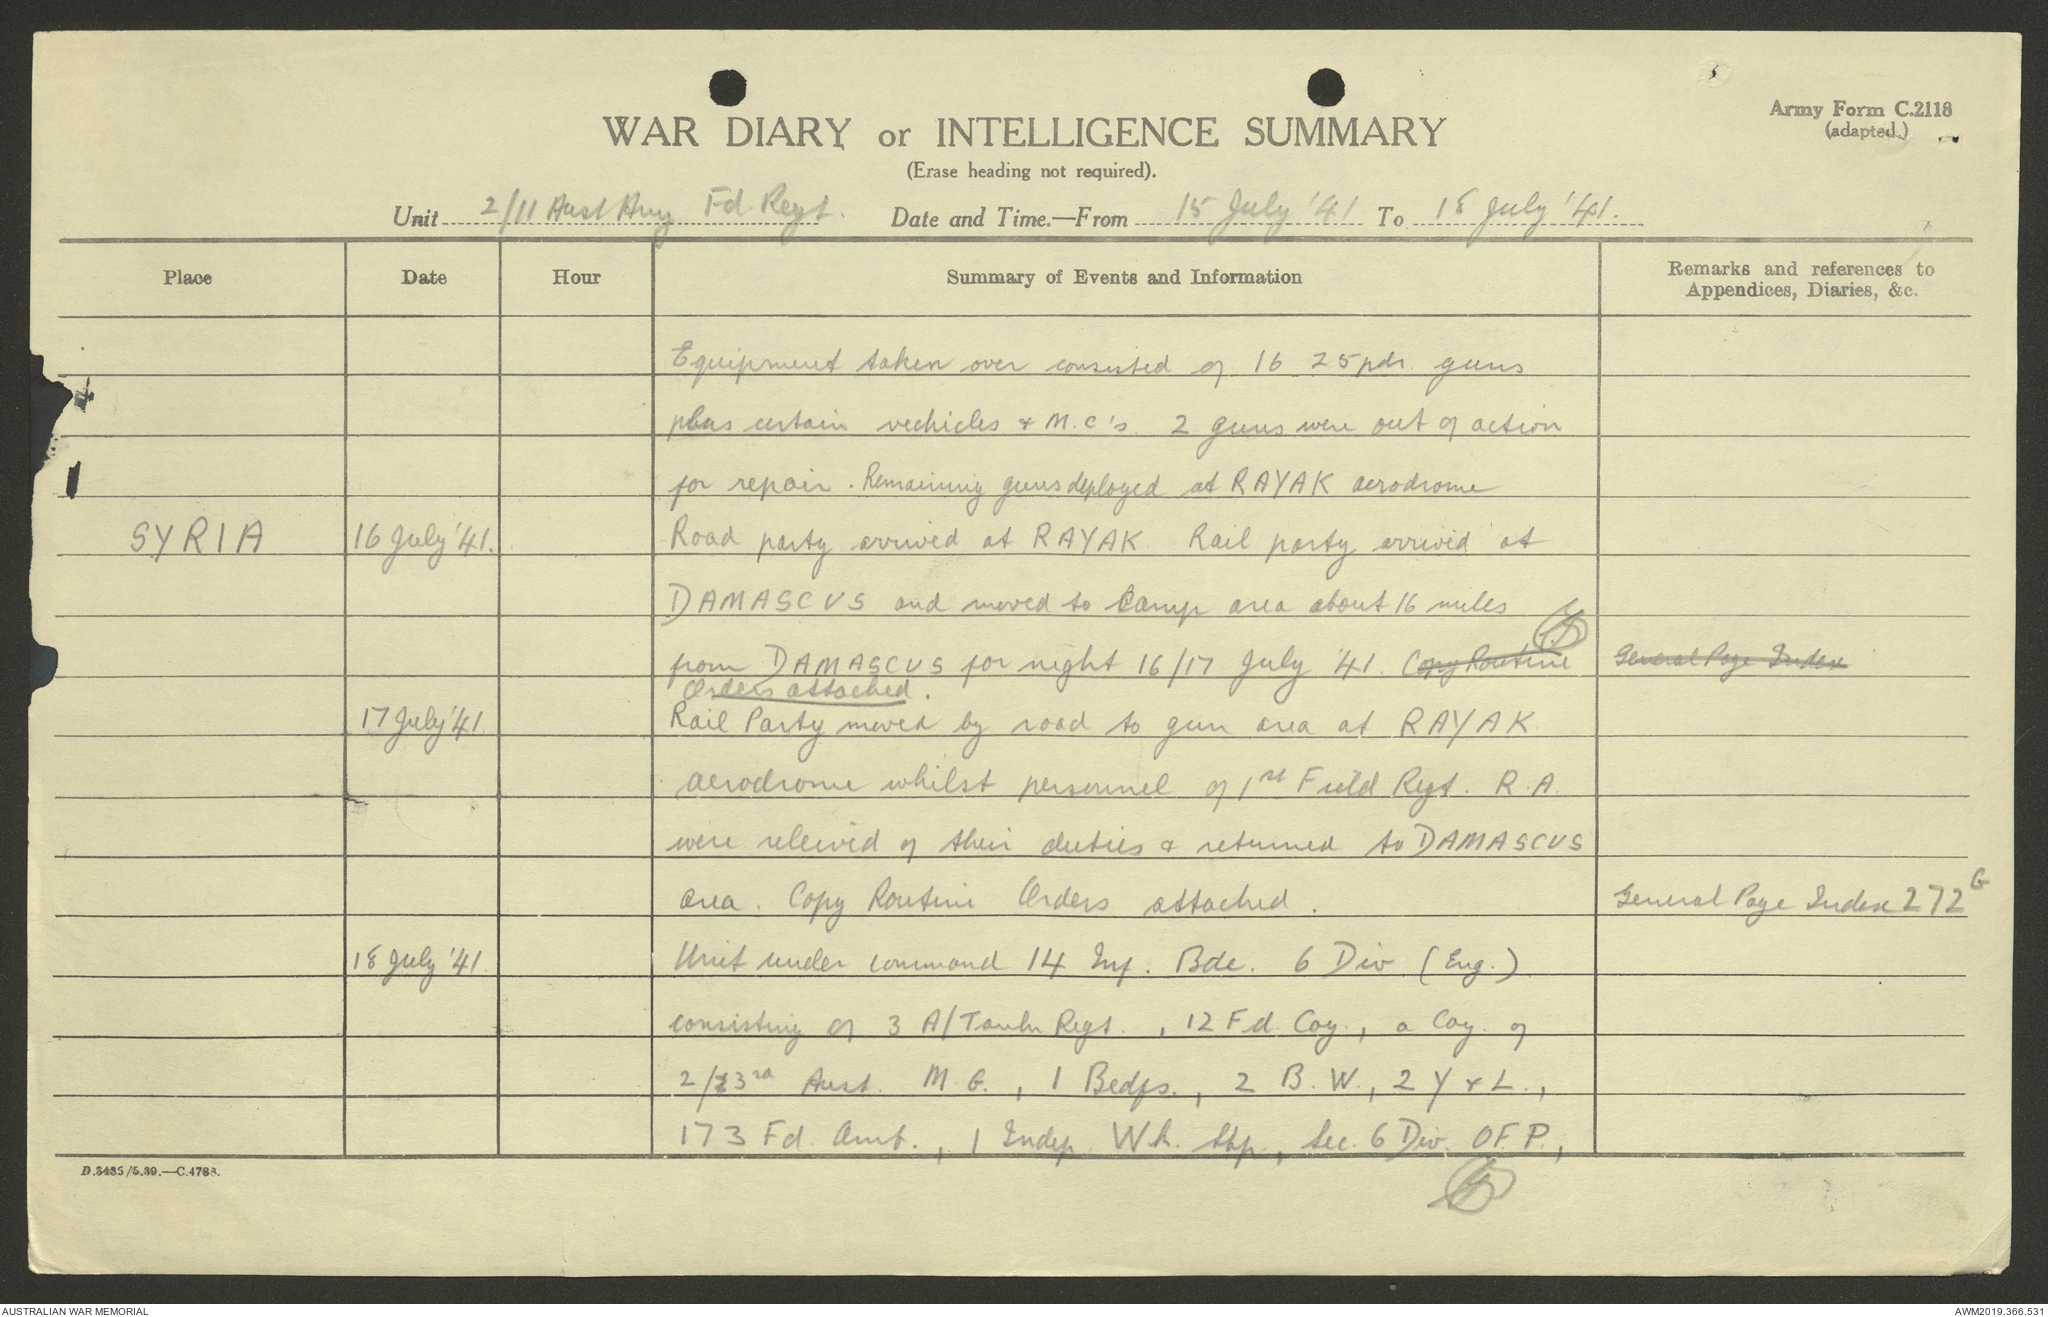 Army Form C.2118
(adapted.)
WAR DIARY or INTELLIGENCE SUMMARY
(Erase heading not required).
Unit 2/11 Aust Army Fd Regt. Date and Time.—From 15 July '41 To 18 July '41.
Place Date Hour Summary of Events and Information Remarks and references to
Appendices, Diaries, &c.
Equipment taken over consisted of 16 25pdr. guns
plus certain vechicles & M.C's. 2 guns were out of action
for repair. Remaining guns deployed at RAYAK aerodrome
SYRIA 16 July '41. Road party arrived at RAYAK. Rail party arrived at
DAMASCUS and moved to Camp area about 16 miles
from DAMASCUS for night 16/17 July '41. Copy Routine General Page Index
Orders attached.
17 July '41 Rail Party moved by road to gun area at RAYAK
aerodrome whilst personnel of 1st Field Regt. R.A.
were releived of their duties & returned to DAMASCUS
area. Copy Routine Orders attached. General Page Index 272 G
18 July '41. Unit under command 14 Inf. Bde. 6 Div. (Eng.)
consisting of 3 A/Tank Regt., 12 Fd. Coy., a Coy. of
2/3rd Aust. M.G., 1 Bedfs., 2 B.W., 2 Y & L.,
173 Fd. Amb., 1 Indep. Wk. Shp, Sec. 6 Div. OF.P.,
D.3435/5.39.—C.4788.
AUSTRALIAN WAR MEMORIAL
AWM2019.366.531